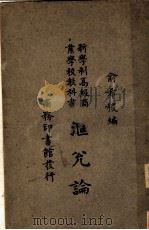 俞希稷編
新學制高級商
業學校教科書
滙兌論
商務印書館發行